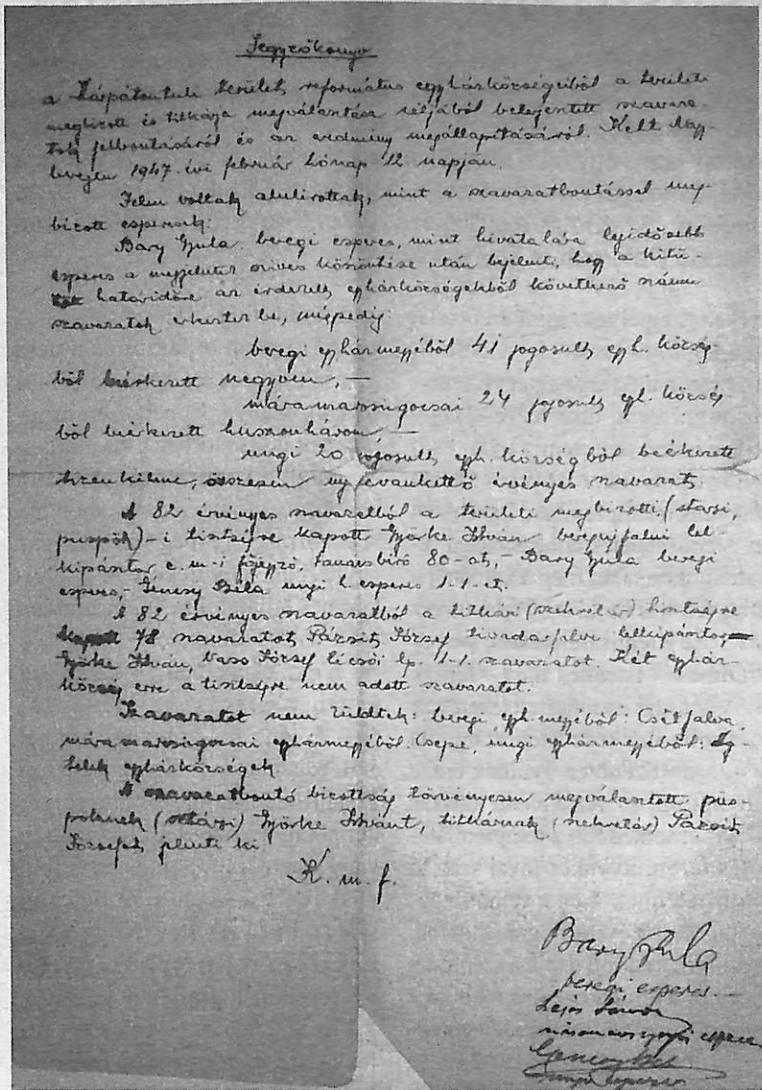 Jegyzőkönyv
a Kárpátontuli terület református egyházközségeiből a területi
megbizott és titkárja megválasztása céljából beérkezett szavaza-
tok felbontásáról és az eredmény megállapitásáról. Kelt Nagy-
beregen 1947. évi február hónap 12 napján.
Jelen voltak alulirottak, mint a szavazatbontással meg-
bizott esperesek.
Bary Gyula beregi esperes, mint hivatalára legidősebb
esperes a megjelentek szives köszöntése után bejelenti, hogy a kitü-
határidőre az érdekelt egyházközségekből következő számu
szavazatok érkeztek be, mégpedig:
beregi egyházmegyéből 41 jogosult egyh. község-
ből beérkezett negyven, —
máramarosugocsai 24 jogosult egyh. község-
ből beérkezett huszonhárom, —
ungi 20 jogosult egyh. községből beérkezett
tizenkilenc, összesen nyolcvankettő érvényes szavazat.
A 82 érvényes szavazatból a területi megbizotti (starsi,
püspök)-i tisztségre kapott Györke István beregujfalui lel-
kipásztor e. m.-i főjegyző, tanácsbiró 80-at, - Bary Gyula beregi
esperes, - Gencsy Béla ungi h. esperes 1-1-et.
A 82 érvényes szavazatból a titkári (szekretár) tisztségre
kapott 78 szavazatot Pázsit József tivadarfalvi lelkipásztor, —
Györke István, Vass József lp. 1-1. szavazatot. Két egyház-
község erre a tisztségre nem adott szavazatot.
Szavazatot nem küldtek: beregi egyh. megyéből: Csetfalva,
máramarosugocsai egyházmegyéből: Csepe, ungi egyházmegyéből:
egyházközségek.
A szavazatbontó bizottság törvényesen megválasztott püs-
pöknek (sztársi) Györke Istvánt, titkárnak (szekretár) Pázsit
Józsefet jelenti ki.
K. m. f.
Bary Gyula
beregi esperes. —
Sándor
esperes
Gencsy Béla
ungi esperes